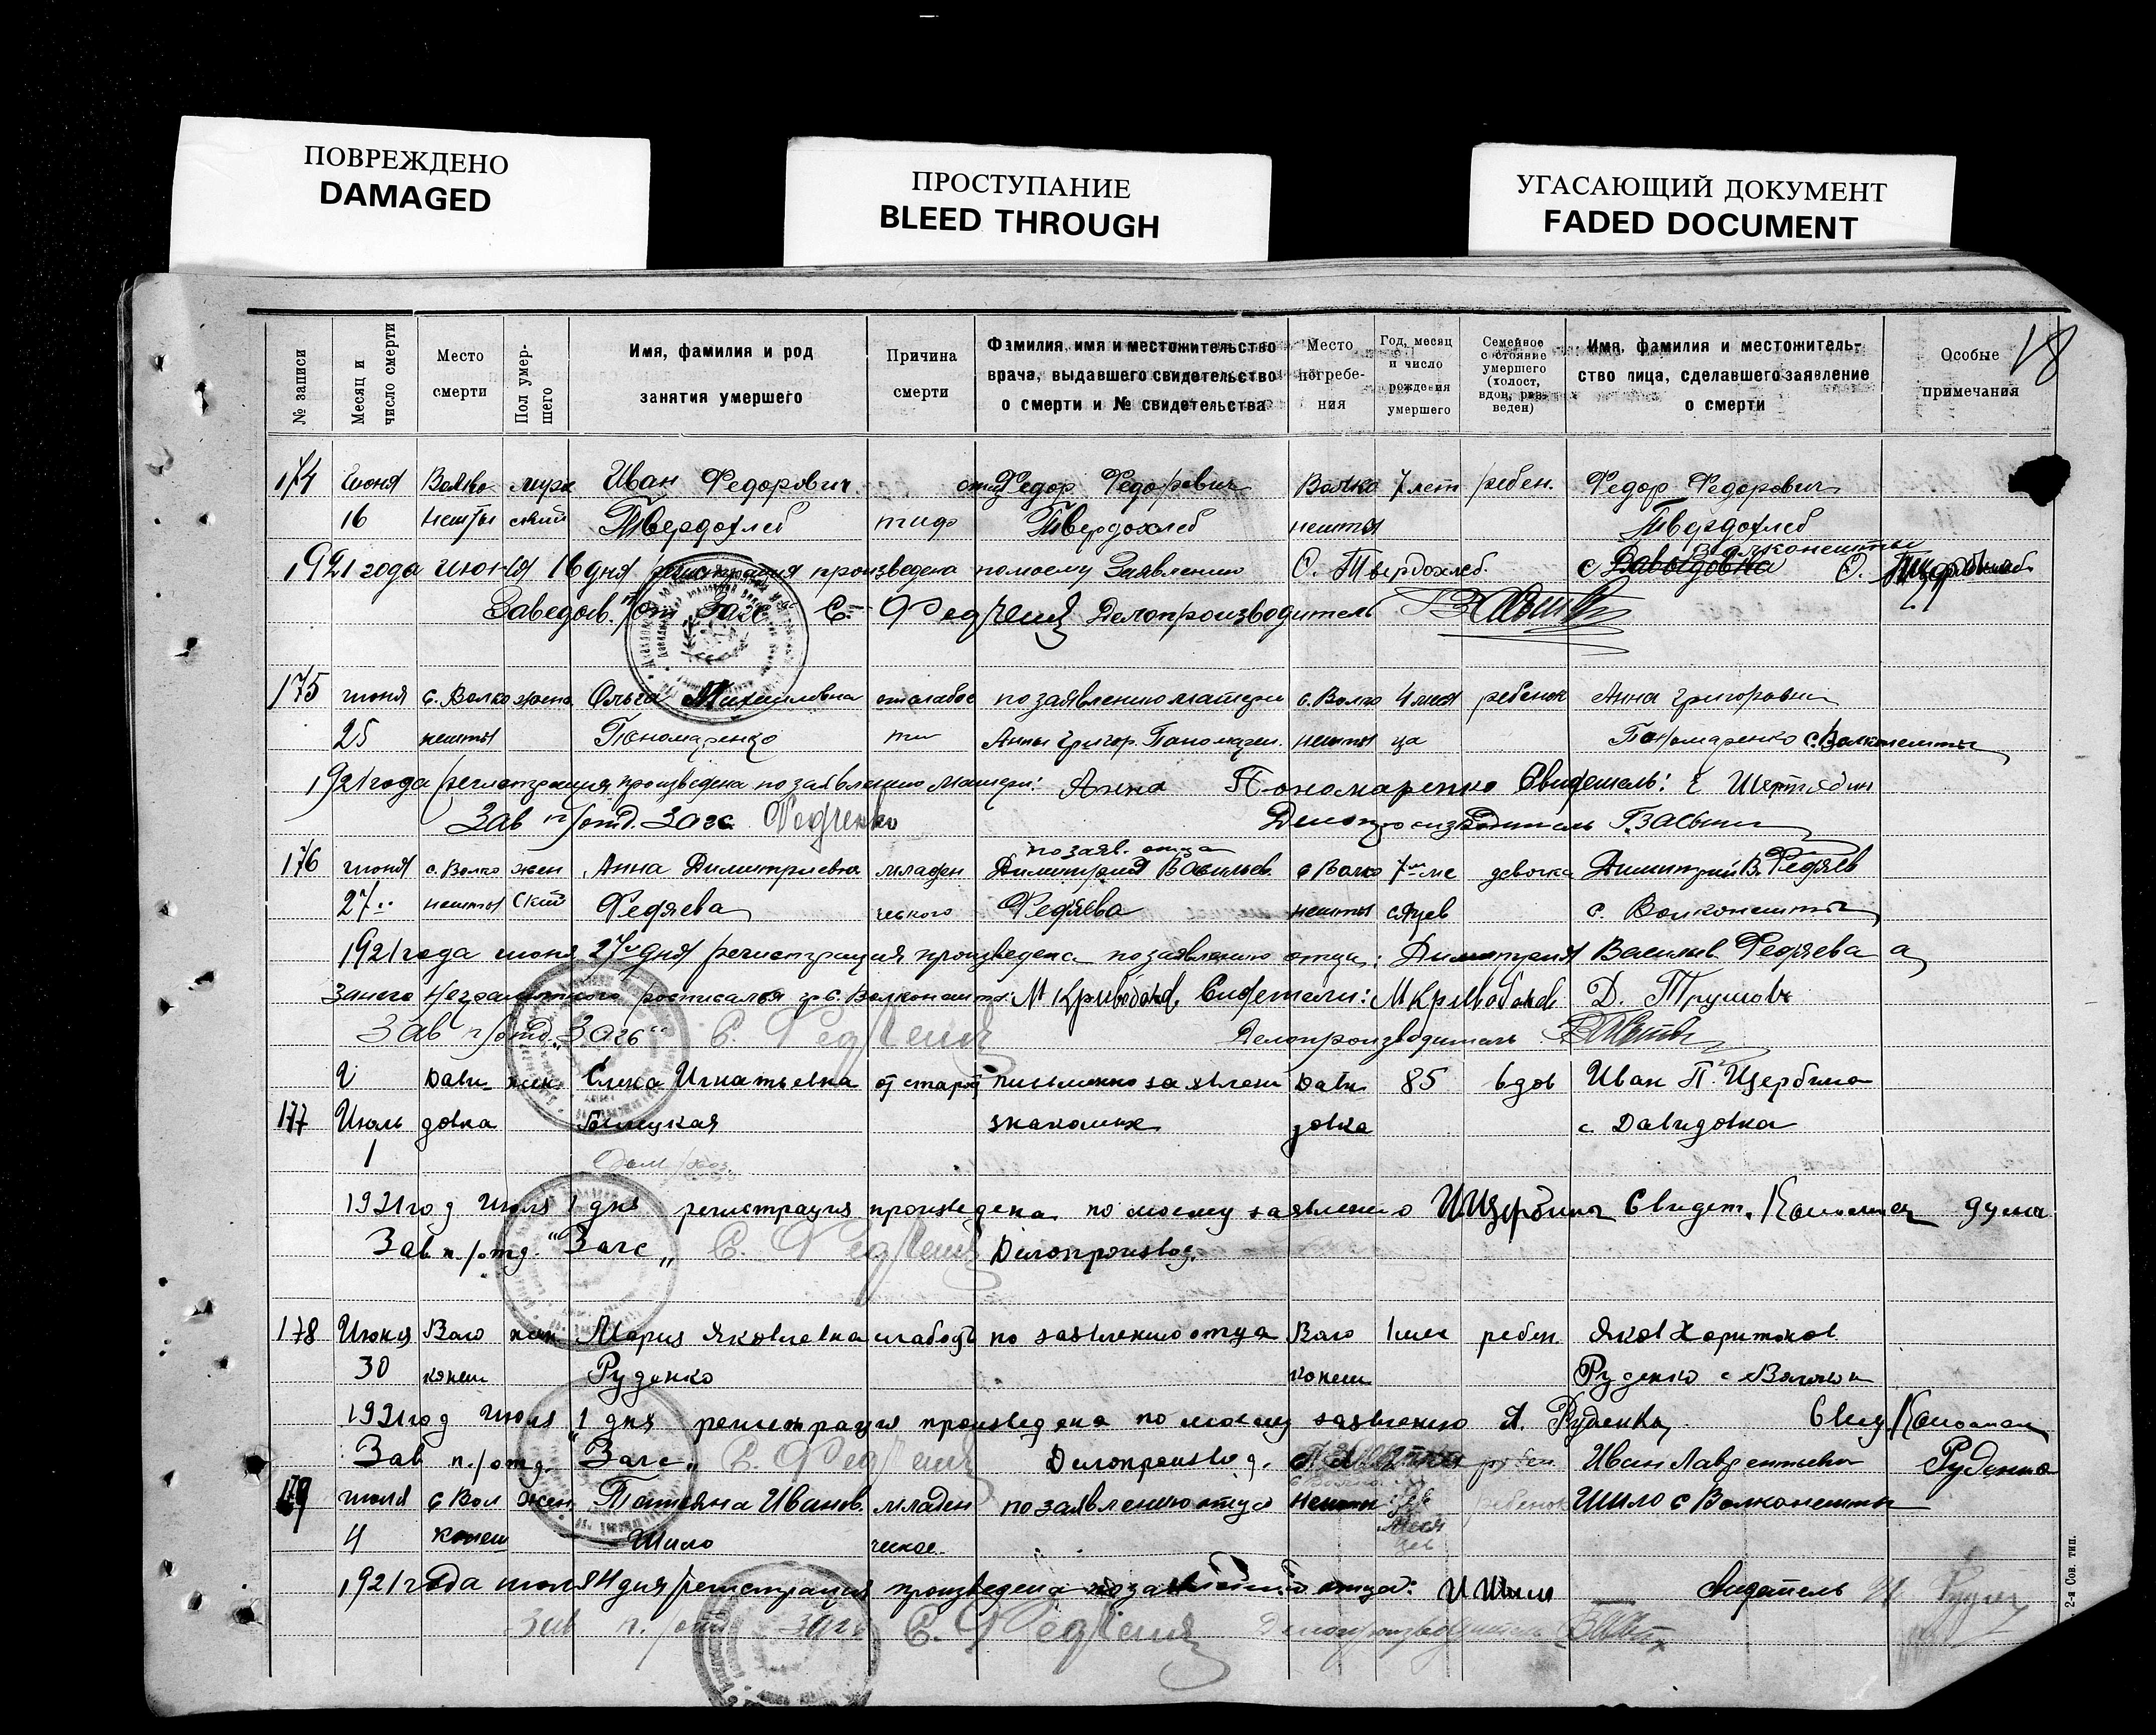 ПОВРЕЖДЕНО
DAMAGED
ПРОСТУПАНИЕ
BLEED THROUGH
УГАСАЮЩИЙ ДОКУМЕНТ
FADED DOCUMENT
18
№ записи
Месяц и число смерти
Место смерти
Пол умер-шего
Имя, фамилия и род занятия умершего
Причина смерти
Фамилия, имя и местожительство врача, выдавшего свидетельство о смерти и № свидетельства
Место погребе-ния
Год, месяц и число рождения умершего
Семейное состояние умершего (холост, вдов, раз-веден)
Имя, фамилия и местожитель-ство лица, сделавшего заявление о смерти
Особые примечания
174 июня Волко Иван Федорович Федор Федорович Волко 7 лет ребен. Федор Федорович
16 нешты Твердохлеб тиф Твердохлеб нешты Твердохлеб
1921 года июня 16 дня регистрация произведена по моему заявлению С. Твердохлеб. с Волконешты
Заведов. п/отд Загс С. Федченко Делопроизводитель
175 июня с. Волко жен. Ольга Михайловна от слабос по заявлению матери с. Волко 4 меся ребенок Анна Григоровна
25 нешты Пономаренко ти Анны Григор. Пономарен. нешты ца Пономаренко с. Волконешты
1921 года регистрация произведена по заявлению матери: Анна Пономаренко Свидетель:
Зав п/отд. Загс Федченко Делопроизводитель
по заяв. отца
176 июня с. Волко жен Анна Димитриевна младен Димитрия Васильев. с Волко 7 ме девочка Димитрий В. Федяев
27 нешты ский Федяева ческого Федяева нешты сяцев с. Волконешты
1921 года июня 27 дня регистрация произведена по заявлению отца: Димитрия Васильев. Федяева а
за него неграмотного росписался гр с. Волконешты: М Кривобоков, Свидетели: М Кривобоков Д. Трушов
Зав п/отд. "Загс" С. Федченко Делопроизводитель
Дави жен. Елена Игнатьевна от старос письменно заявлен Дави 85 вдов Иван П. Щербина
177 Июль довка Белецкая знакомых довка с Давидовка
1
1921 год Июля 1 дня регистрация произведена по моему заявлению И Щербина Свидет.
Зав п./отд. "Загс" С. Федченко Делопроизвод.
178 Июня Вол жен Мария Яковлевна слабость по заявлению отца Вол 1 мес ребен Яков Харитонов
30 конеш Руденко конеш Руденко с Волкон
1921 год Июля 1 дня регистрация произведена по моему заявлению Я. Руденко Свид.
Зав п./отд. "Загс" С. Федченко Делопроизвод. Иван Лаврентьевич Руденко
179 июля с Вол жен Татьяна Иванов. младен по заявлению отца нешты ребенок Шило с Волконешты
4 конеш Шило ческое меся цев
1921 года июля 4 дня регистрация произведена по заявлению отца: И Шило свидетель
Зав п./отд Загс С. Федченко Делопроизводитель
2-я Сов. тип.